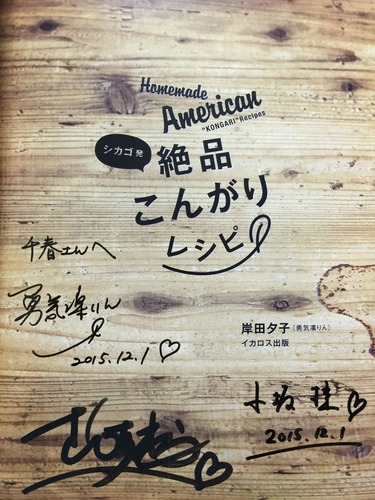 Homemade
American
"KONGARI" Recipes
シカゴ発
絶品
こんがり
レシピ
千春さんへ
勇気凛りん
2015.12.1
岸田夕子(勇気凛りん)
イカロス出版
小坂 桂
2015.12.1